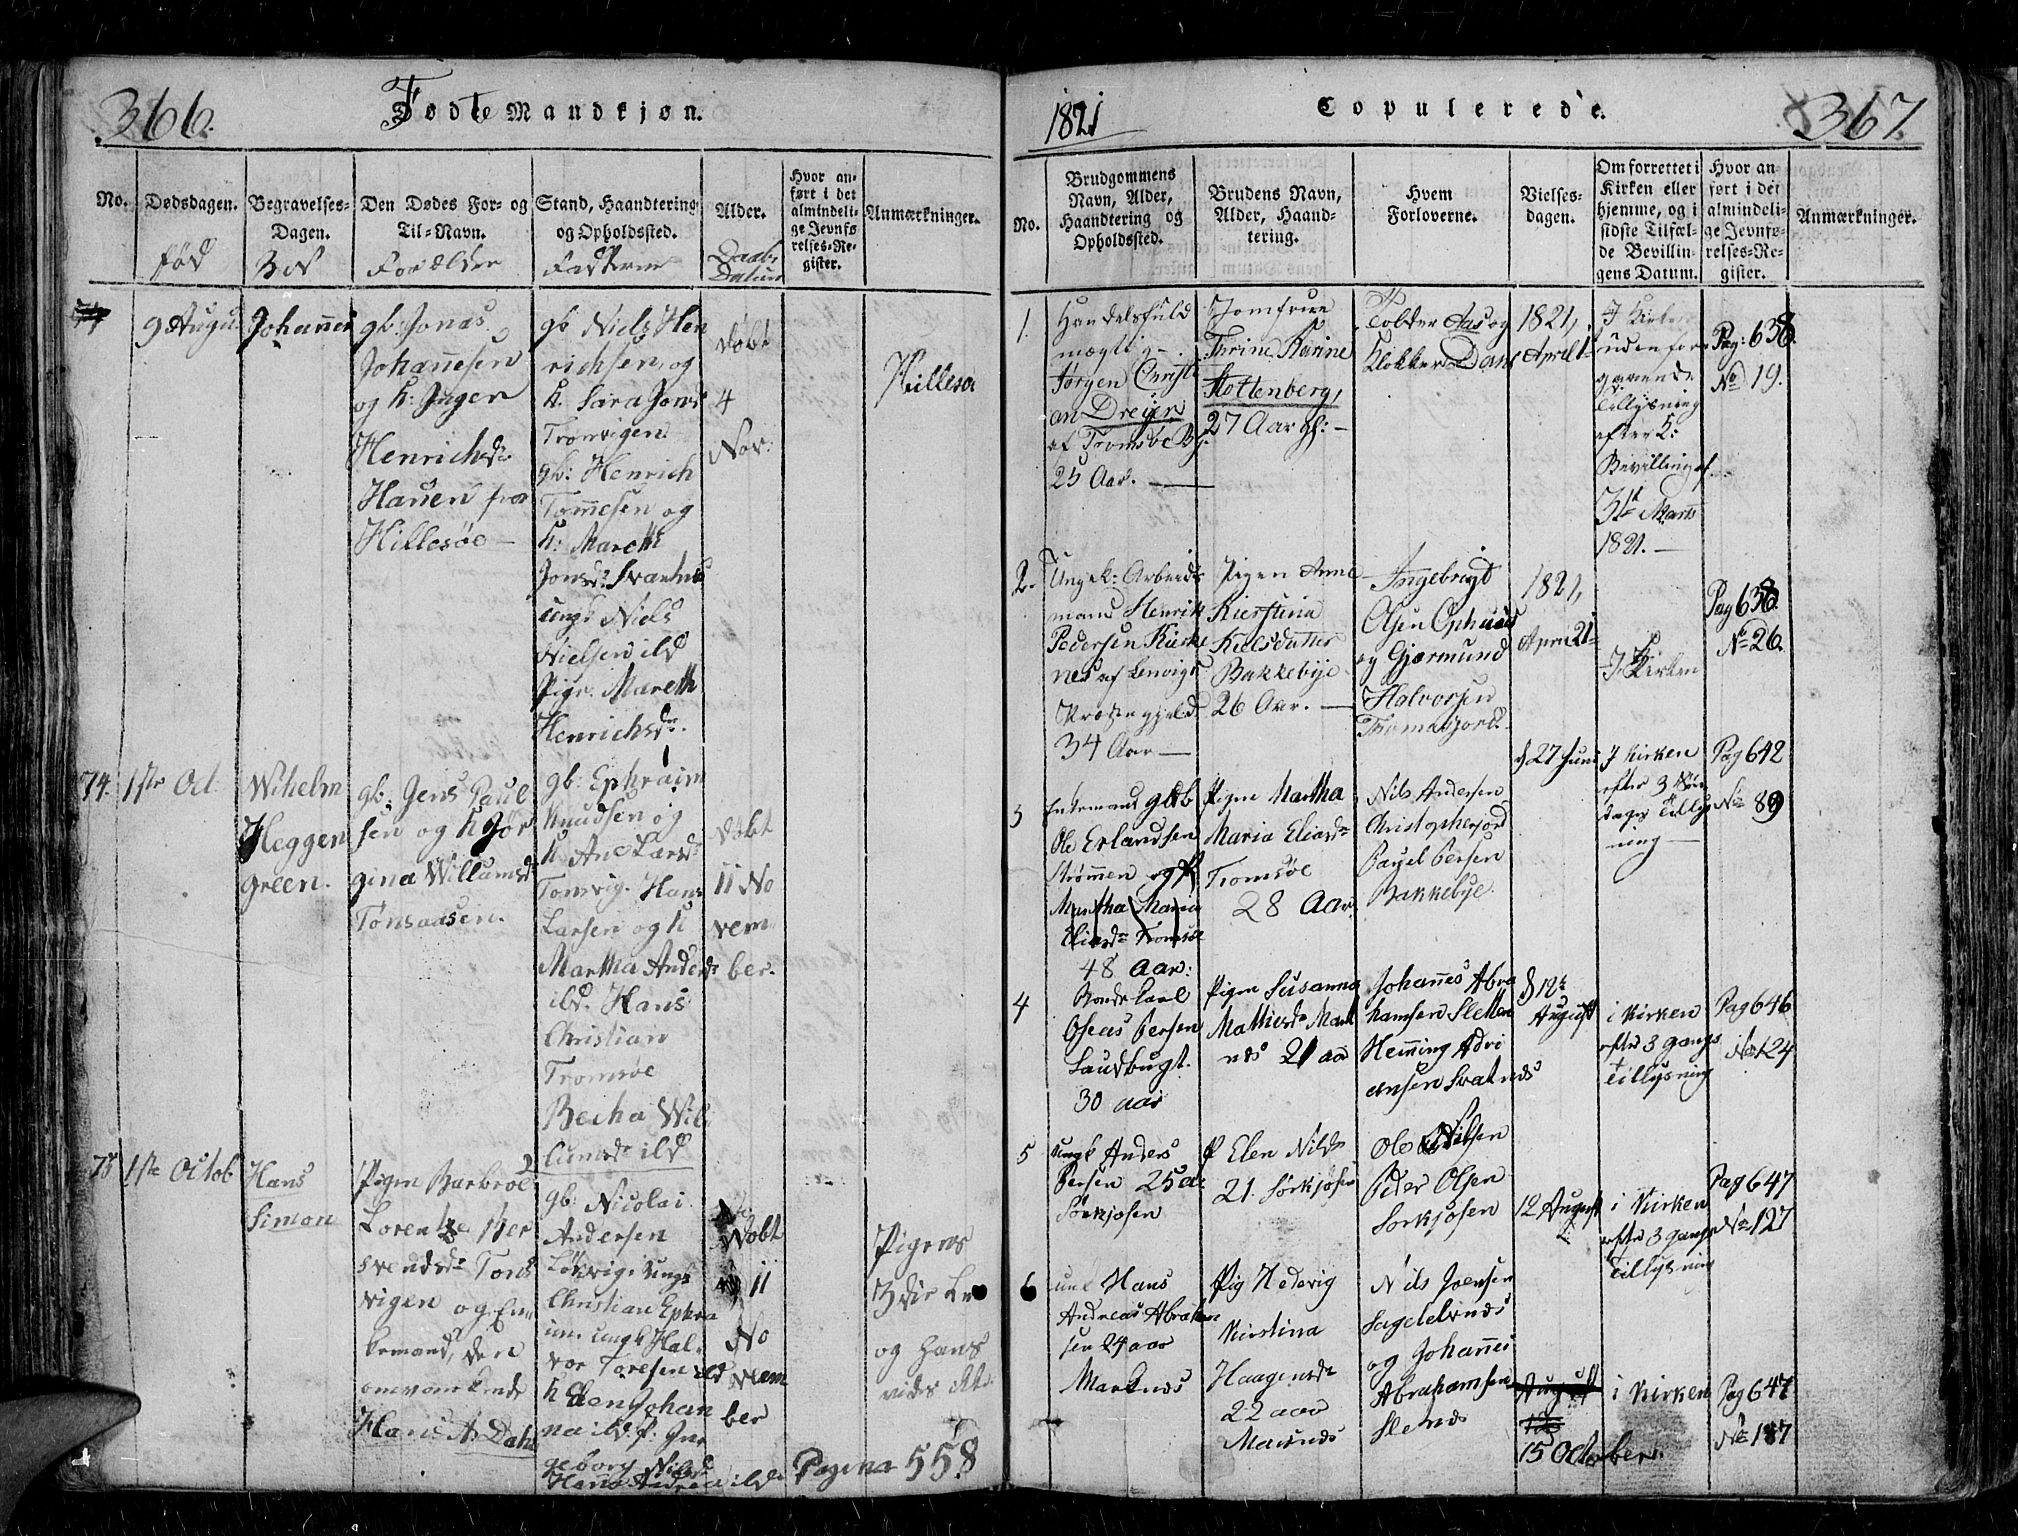 366.
Fødte Mandkjøn.
No.
Dødsdagen.
fød
Begravelses-
Dagen.
Den Dødes For- og
Til-Navn.
Forælder
Stand, Haandtering
og Opholdssted.
Fadderne
Alder.
Daabs
Datum
Hvor an-
ført i det
almindeli-
ge Jevnfø-
relses-Re-
gister.
Anmærkninger.
9 Augu.
Johannes
gb: Jonas
Johañesen
og k: Inger
Henrichsdr
Hauen fra
Hillesøe
gb Niels Hen
richsen og
k. Sara Jons
Tronvigen
gb: Henrich
Tom̄esen og
k: Mareth
Jonsdr
ungk Niels
Nielsen ibd
Pige Mareth
Henrichsdr.
døbt
4
Nov:
Hillesø
74.
1ste Oct.
Wihelm
Heggen
green.
gb. Jens Paul
sen og k Jør
gina Willumsdr
Tønsaasen.
gb: Ephraim
Knudsen og
k Ane Larsdr
Tonsvig. Hans
Larsen og k
Martha Andersdr
ibd. Hans
Christian
Tromsøe
Becha Wil
lumsdr ibd
døbt
11 No
vem
ber.
75
1ste Octob
Hans
Simon
Pigen Barbroe
Lorentze
svendsdr Tons
vigen og En
kemand, den
omvankende
Hans A. Dahl
gb: Nicolai
Andersen
ungk
Christian Ephra
im. ungk Hal
vor Toresen ibd
k Elen Johan
na ibd. P. In
geborg Nilsdr
Hans Andrea ibd
Døbt
11
No
vem
ber
Pigens
3die
og Hans
vides ikke
Pagina 558

1821
Copulerede.
367.
No.
Brudgommens
Navn, Alder,
Haandtering og
Opholdssted.
Brudens Navn,
Alder, Haand-
tering.
Hvem
Forloverne.
Vielses-
dagen.
Om forrettet i
Kirken eller
hjemme, og i
sidste Tilfæl-
de Bevillin-
gens Datum.
Hvor an
ført i det
almindeli-
ge Jevnfø-
relses-Re-
gister.
Anmærkninger.
1.
Handelsfuld
mægtig
Jørgen Christi
an Dreyer
af Tromsøe By.
25 Aar.
Jomfrue
Trine Karine
Stoltenberg,
27 Aar gl:
Tolder Aas og
Klokker Dons
1821,
April 1
I Kirken
uden fore
gaaende
tillysning
efter K:
Bevilling af
31te Marts
1821.
Pag: 638.
No 19.
2.
Ungk: Arbeids
mand Henrik
Pedersen Kirke
nes af Lenvigs
Præstegjeld
34 Aar
Pigen Anne
Kierstina
Nielsdatter
Bakkebye
26 Aar.
Ingebrigt
Olsen Ophuus
og Gjærmund
Halvorsen
Thomasjord.
1821,
April 21
I Kirken
Pag 638.
No 26.
3
Enkemand gb
Ole Erlandsen
Strømmen og P
Martha Maria
Eliasdr Tromsøe
48 Aar:
Pigen Martha
Maria Eliasdr
Tromsøe
28 Aar
Nils Andersen
Christophersjord
Povel Persen
Bakkebye
d 27 Juni
I Kirken
efter 3 Søn
dages Tillys
ning
Pag 642
No 89
4
Bonde Karl
Oseas Persen
Laudbugt.
30 aar
Pigen Susanna
Mathisdr Mark
nds 21 aar
Johañes Abra
hamsen Sletten
Hem̄ing Adri
ansen Svatnds
d 12te
August
i Kirken
efter 3 gangs
Tillysning
Pag 646
No 124
5
ungk Anders
Persen 25 a:
Sørkjosen
P Elen Nilsdr
21. Sørkjosen
Ole Nilsen
Peder Olsen
Sorkjosen
12 August
i Kirken
efter 3 gange
Tillysning
Pag 647
No 127
6
Hans
Andreas Abraham
sen 24 aar
Marknds
Pig Hedevig
Kirstina
Haagensdr
22 aar
Nils Joensen
Sagelvnds
og Johañes
Abrahamsen
August
12
15 October.
i Kirken
Pag 647
No 187